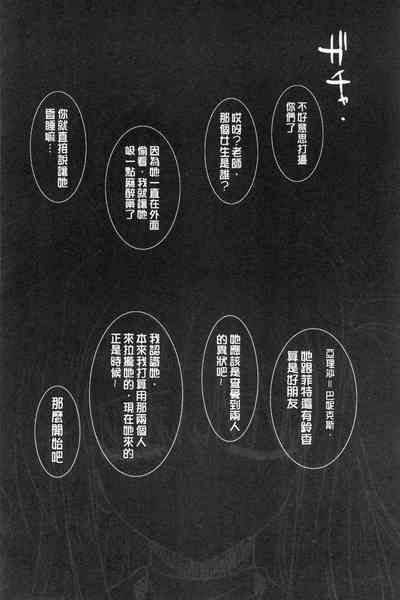 ガチャ・
不好意思打擾
你們了
哎呀？老師，
那個女生是誰？
因為她一直在外面
偷看，我就讓她
吸一點麻醉藥了
你就直接說讓她
昏睡嘛…
亞理沙＝巴妮克斯．
她跟菲特還有鈴香
算是好朋友
她應該是查覺到兩人
的異狀吧~
我認識她，
本來我打算用那兩個人
來拉攏她的，現在她來的
正是時候~
那麼開始吧